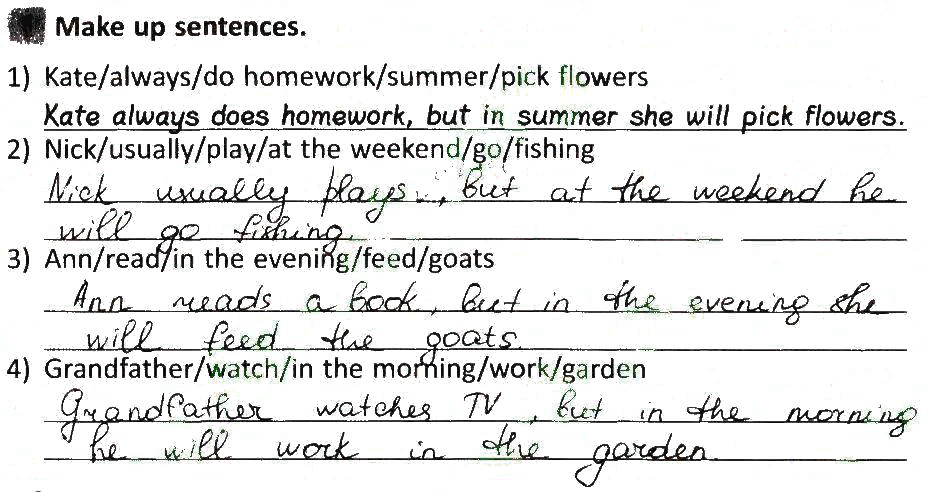 Make up sentences.
1) Kate/always/do homework/summer/pick flowers
Kate always does homework, but in summer she will pick flowers.
2) Nick/usually/play/at the weekend/go/fishing
Nick usually plays, but at the weekend he
will go fishing.
3) Ann/read/in the evening/feed/goats
Ann reads a book, but in the evening she
will feed the goats.
4) Grandfather/watch/in the morning/work/garden
Grandfather watches TV, but in the morning
he will work in the garden